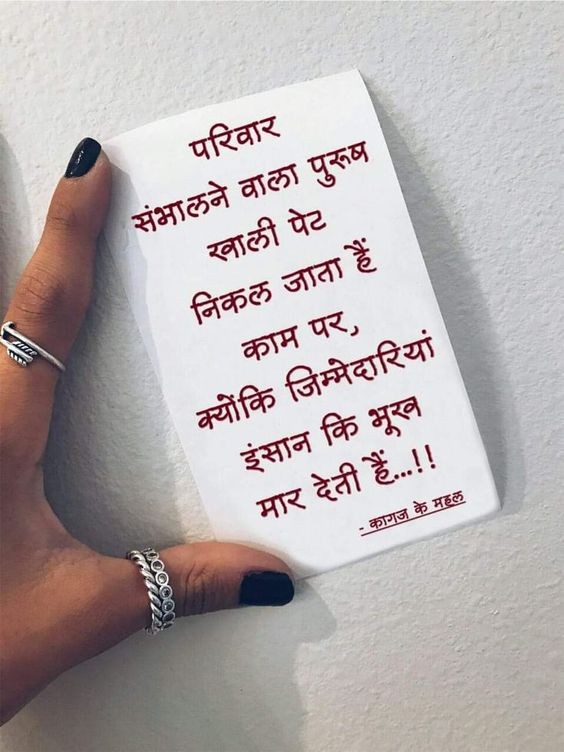 परिवार
संभालने वाला पुरूष
खाली पेट
निकल जाता हैं
काम पर,
क्योंकि जिम्मेदारियां
इंसान कि भूख
मार देती हैं...!!
- कागज के महल